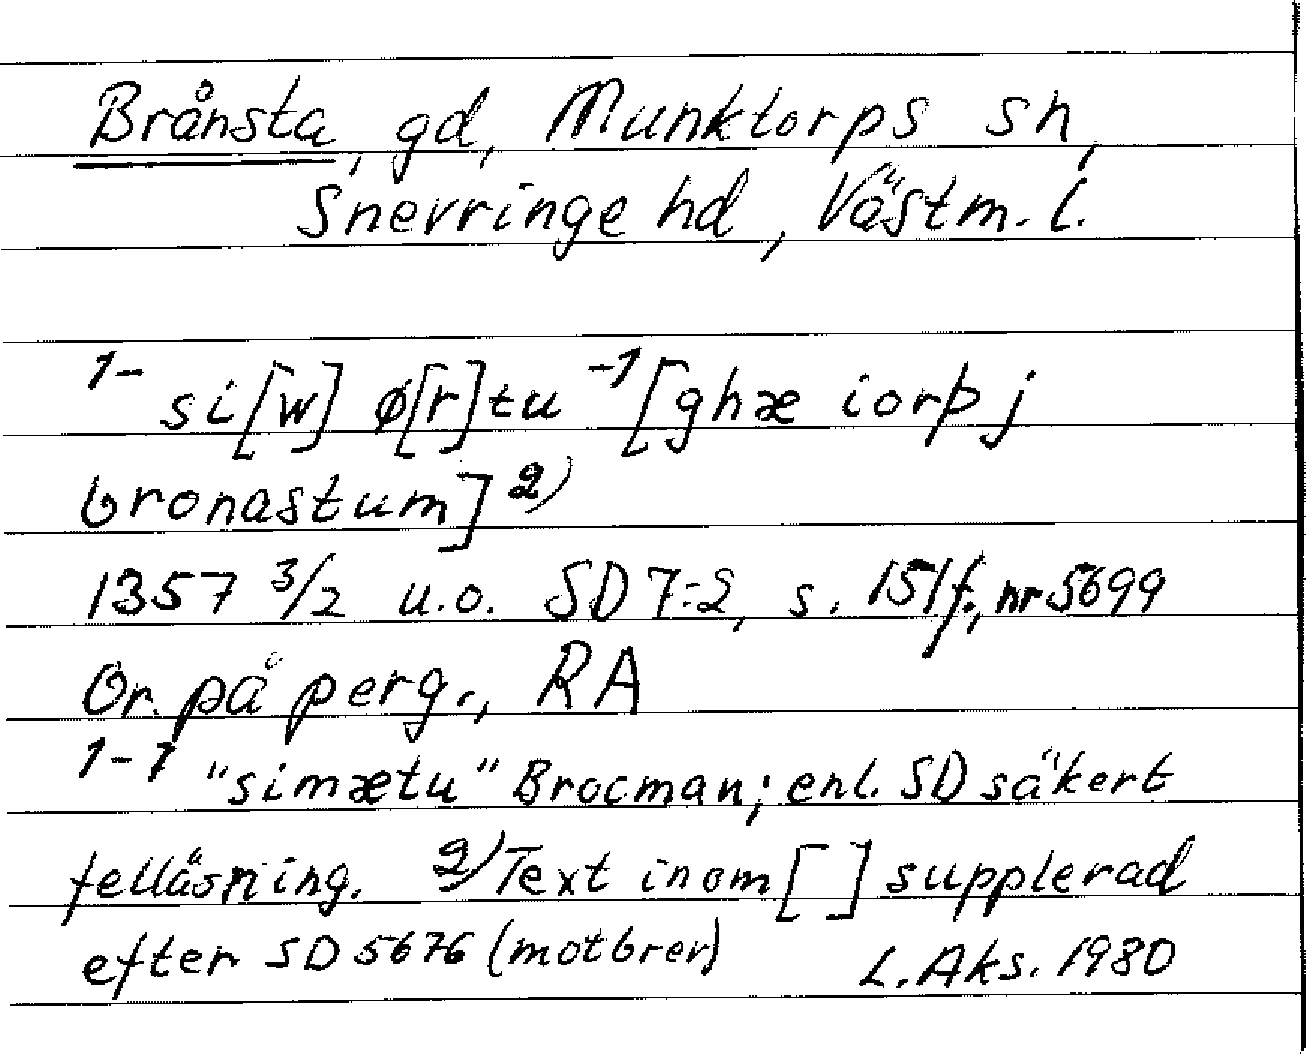 Brånsta, gd, Munktorps sn,
Snevringe hd, Västm. l.
1- si[w] ø[r]tu -1 [ghæ iorþ j
bronastum] 2)
1357 3/2 u.o. SD 7:2, s. 151f., nr 5699
Or. på perg., RA
1-1 "simætu" Brocman; enl. SD säkert
felläsning. 2) Text inom [ ] supplerad
efter SD 5676 (motbrev) L. Aks. 1980